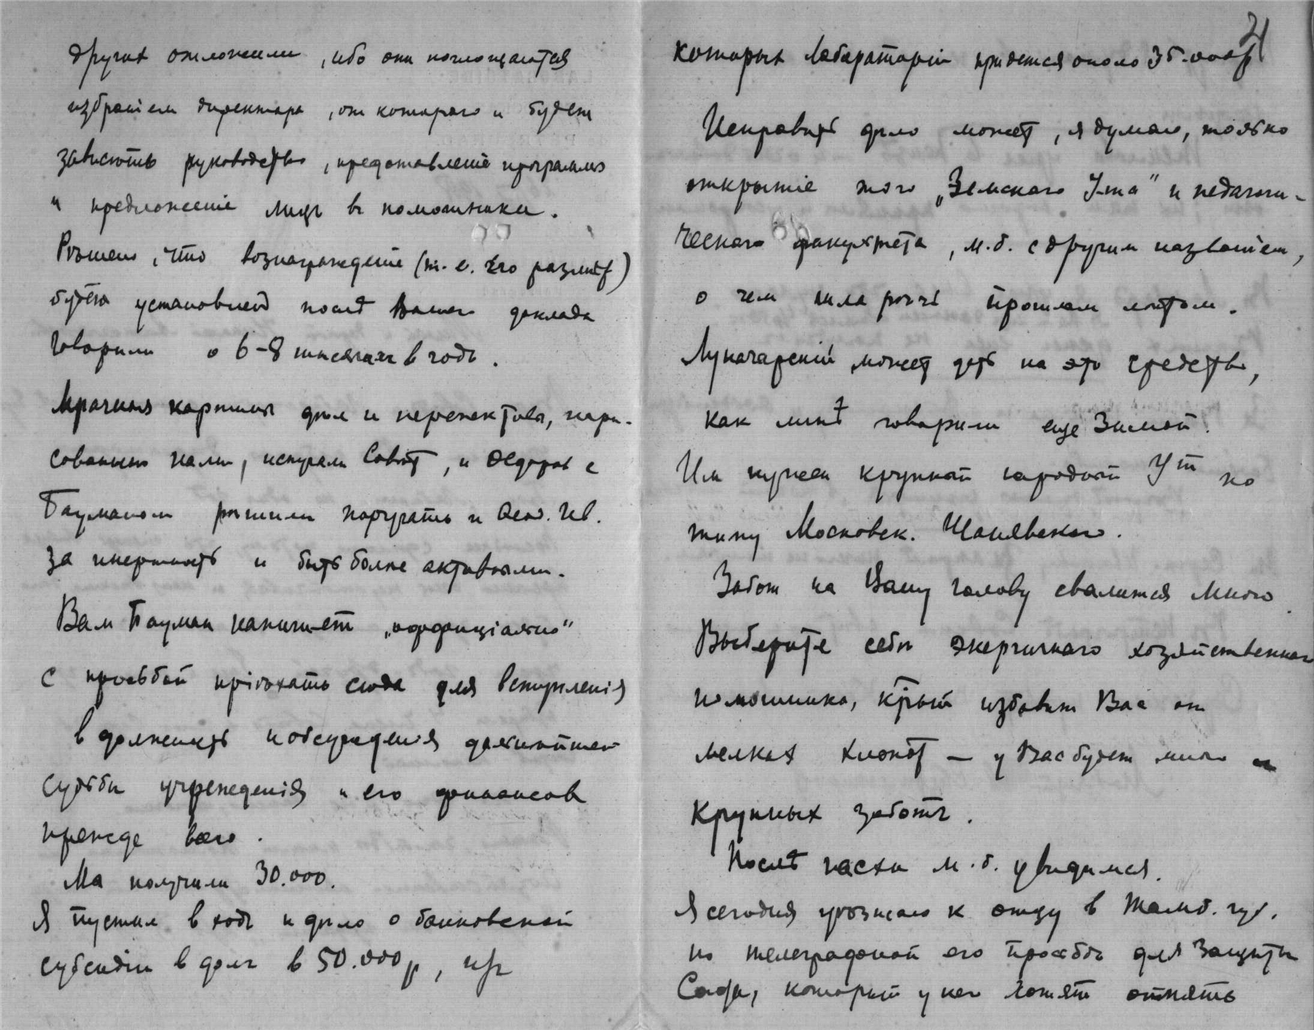 других отложили, ибо они поглощаются
избранiем директора, от котораго и будет
зависѣть руководство, представленiе программы
и предложенiе лиц в помощники.
Рѣшено, что вознагражденiе (т.е. его размѣр)
будет установлен послѣ Вашего доклада
Говорили о 6-8 тысячах в год.
Мрачная картина дѣл и перспективы, нари-
сованныя нами, испугали Совѣт, и Федоров с
Бауманом рѣшили поругать и Ѳеод. Ив.
за инертность и быть более активными.
Вам Бауман напишет „оффицiально"
с просьбой прiѣхать сюда для вступленiя
в должность и обсужденiя дальнѣйшей
судьбы учрежденiя и его финансов
прежде всего.
Мы получили 30.000.
Я пустил в ход и дѣло о банковской
субсидiи в долг в 50.000 р, из
21
которых Лабораторiи придется около 35.000 р
Исправить дѣло может, я думаю, только
открытiе того „Земского Ун-та" и педагоги-
ческого факультета, м.б. с другим названiем,
о чем шла рѣчь прошлым лѣтом.
Луначарскiй может дать на это средства,
как мнѣ говорили еще зимой.
Им нужен крупный народный Ут по
типу Московск. Шанявского.
Забот на Вашу голову свалится много.
Выберите себѣ энергичного хозяйственного
помощника, крый избавит Вас от
мелких хлопот — у Вас будет много и
крупных забот.
Послѣ пасхи м.б. увидимся.
Я сегодня уѣзжаю к отцу в Тамб. губ.
по телеграфной его просьбѣ для защиты
Сада, который у него хотят отнять